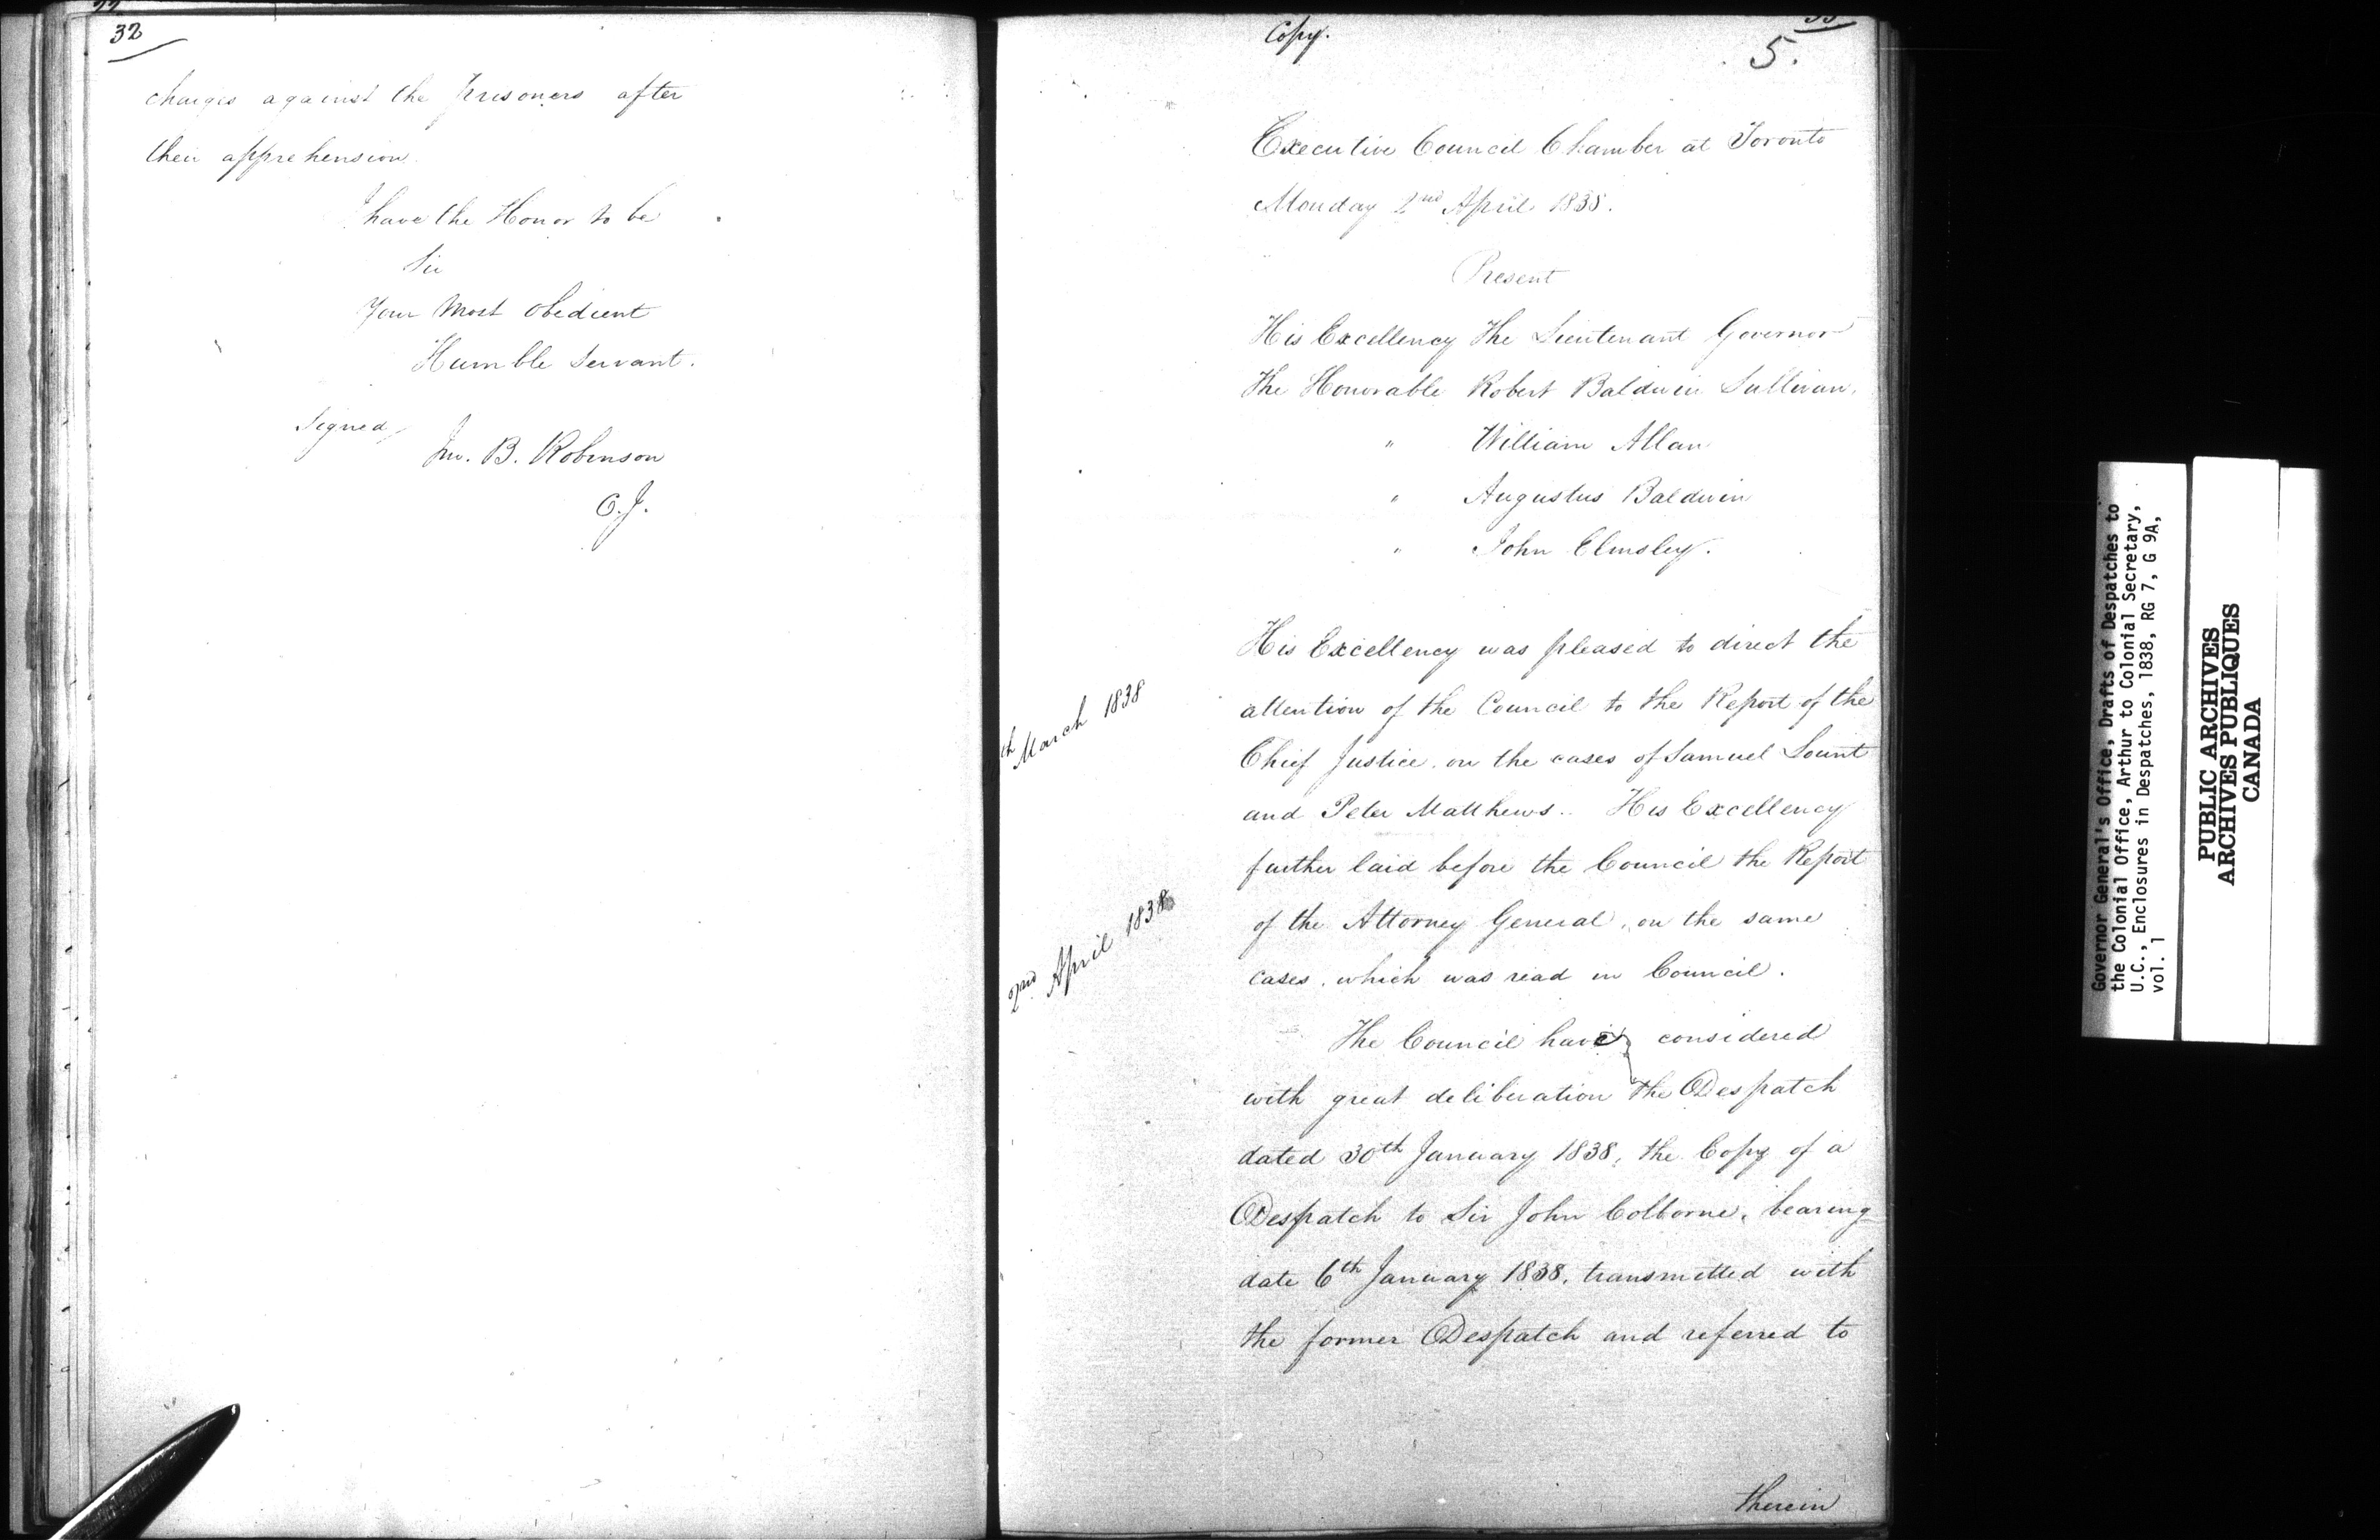 32
charges against the prisoners after
their apprehension.
I have the Honor to be
Sir
Your Most Obedient
Humble Servant.
Signed
Jno. B. Robinson
C.J.
Copy.
33
5.
Executive Council Chamber at Toronto
Monday 2nd April 1838.
Present
His Excellency The Lieutenant Governor
The Honorable Robert Baldwin Sullivan,
" William Allan
" Augustus Baldwin
" John Elmsley.
His Excellency was pleased to direct the
attention of the Council to the Report of the
th March 1838
Chief Justice, on the cases of Samuel Lount
and Peter Matthews.. His Excellency
further laid before the Council the Report
2nd April 1838
of the Attorney General, on the same
cases, which was read in Council.
The Council have considered
with great deliberation the Despatch
dated 30th January 1838, the Copy of a
Despatch to Sir John Colborne, bearing
date 6th January 1838, transmitted with
the former Despatch and referred to
therein
Governor General's Office, Drafts of Despatches to
the Colonial Office, Arthur to Colonial Secretary,
U.C., Enclosures in Despatches, 1838, RG 7, G 9A,
vol. 1
PUBLIC ARCHIVES
ARCHIVES PUBLIQUES
CANADA